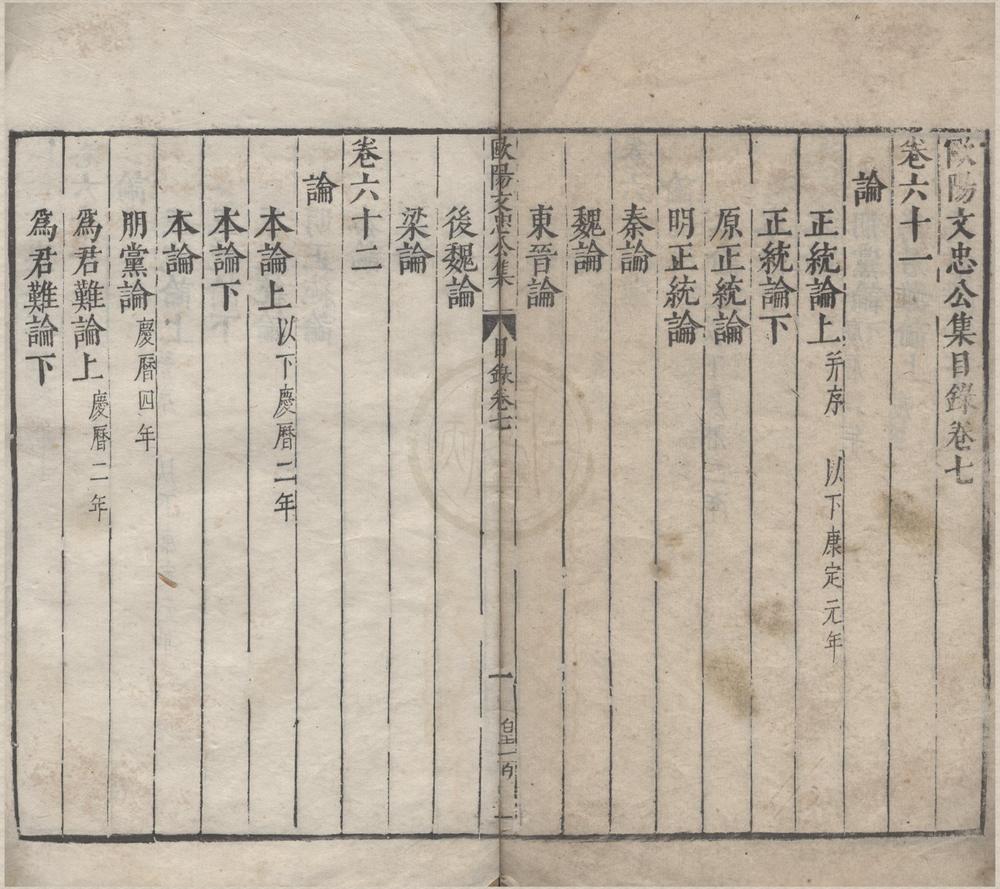 歐陽文忠公集目錄卷七
卷六十一
論
正統論上 并序 以下康定元年
正統論下
原正統論
明正統論
秦論
魏論
東晉論
歐陽文忠公集 目錄卷七 一
後魏論
梁論
卷六十二
論
本論上 以下慶曆二年
本論下
本論
朋黨論 慶曆四年
爲君難論上 慶曆二年
爲君難論下